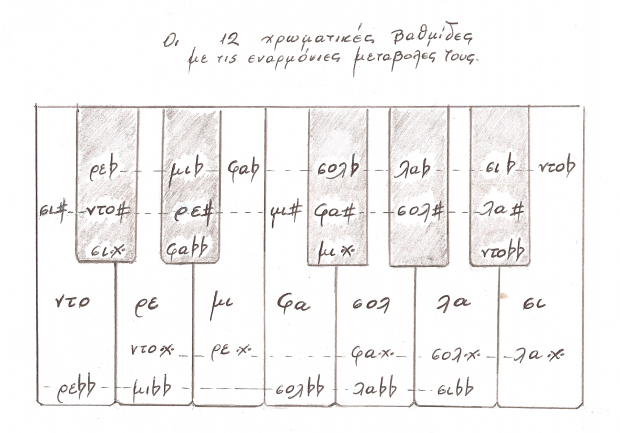 Οι 12 χρωματικές βαθμίδες
με τις εναρμόνιες μεταβολες τους.
ρε♭ μι♭ φα♭ σολ♭ λα♭ σι♭ ντο♭
σι# ντο# ρε# μι# φα# σολ# λα#
σι.x. φα♭♭ μι.x. ντο♭♭
ντο ρε μι φα σολ λα σι
ντο.x. ρε.x. φα.x. σολ.x. λα.x.
ρε♭♭ μι♭♭ σολ♭♭ λα♭♭ σι♭♭